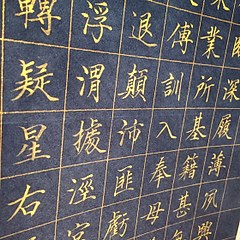 深履薄夙
業所基籍甚
傅訓入奉母
退顛沛匪虧
浮渭據涇宮
轉疑星右